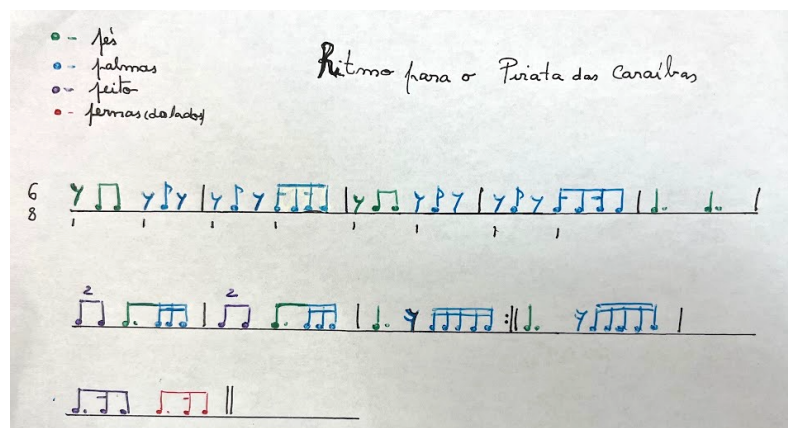 - pés
- palmas
- peito
- pernas (do lados)
Ritmo para o Pirata das Caraíbas
6
8
2 2